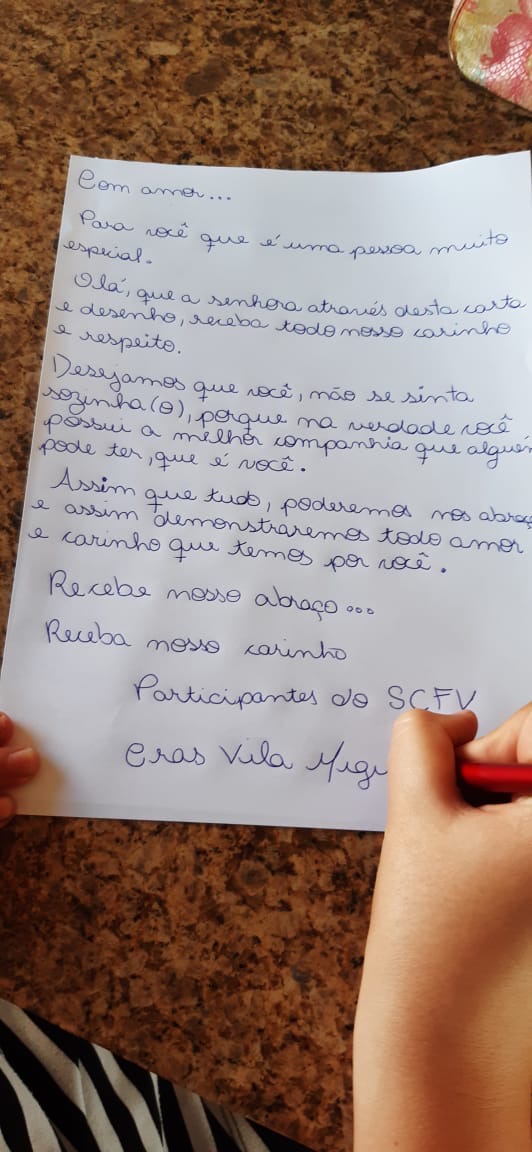 Com amor...
Para você que é uma pessoa muito
especial.
Olá, que a senhora através desta carta
e desenho, receba todo nosso carinho
e respeito.
Desejamos que você, não se sinta
sozinha(o), porque na verdade você
possui a melhor companhia que alguém
pode ter, que é você.
Assim que tudo, poderemos nos abraç
e assim demonstraremos todo amor
e carinho que temos por você.
Recebe nosso abraço...
Receba nosso carinho
Participantes do SCFV
Cras Vila Migu